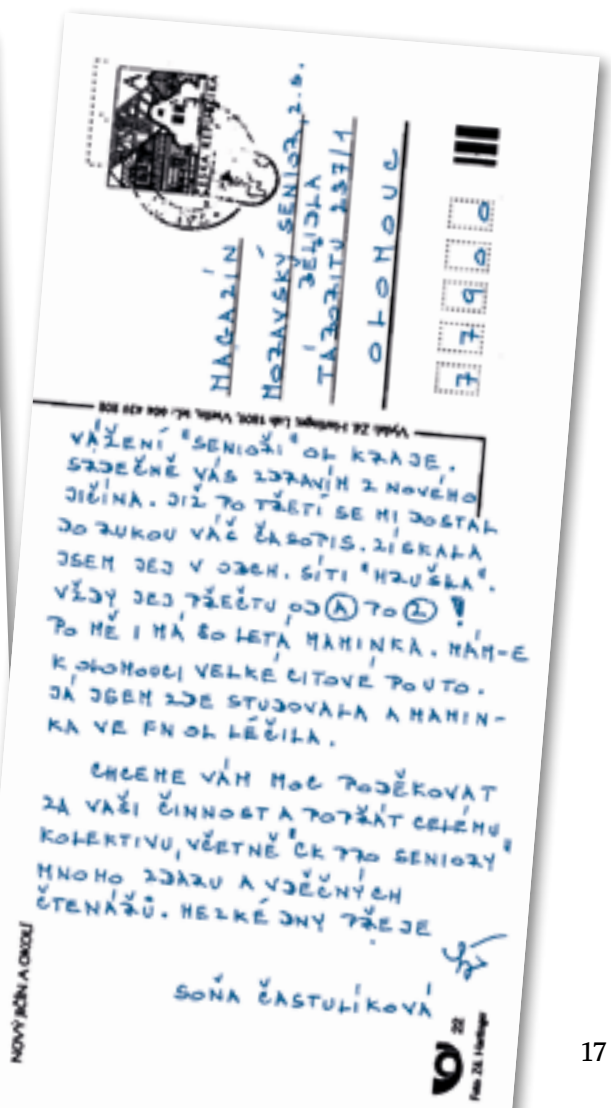 ČESKÁ REPUBLIKA
A
MAGAZÍN
MORAVSKÝ SENIOR, z.s.
BĚLIDLA
TÁBORITŮ 237/1
OLOMOUC
7 7 9 0 0
VÁŽENÍ "SENIOŘI" OL KRAJE.
SRDEČNĚ VÁS ZDRAVÍM Z NOVÉHO
JIČÍNA. JIŽ PO TŘETÍ SE MI DOSTAL
DO RUKOU VÁŠ ČASOPIS. ZÍSKALA
JSEM JEJ V OBCH. SÍTI "HRUŠKA".
VŽDY JEJ PŘEČTU OD A PO Z !
PO MĚ I MÁ 80 LETÁ MAMINKA. MÁM-E
K OLOMOUCI VELKÉ CITOVÉ POUTO.
JÁ JSEM ZDE STUDOVALA A MAMIN-
KA VE FN OL LÉČILA.
CHCEME VÁM MOC PODĚKOVAT
ZA VAŠI ČINNOST A POPŘÁT CELÉMU
KOLEKTIVU, VČETNĚ "CK PRO SENIORY"
MNOHO ZDARU A VDĚČNÝCH
ČTENÁŘŮ. HEZKÉ DNY PŘEJE
SOŇA ČASTULÍKOVÁ
NOVÝ JIČÍN A OKOLÍ
22
Foto Zd. Hartinger
17